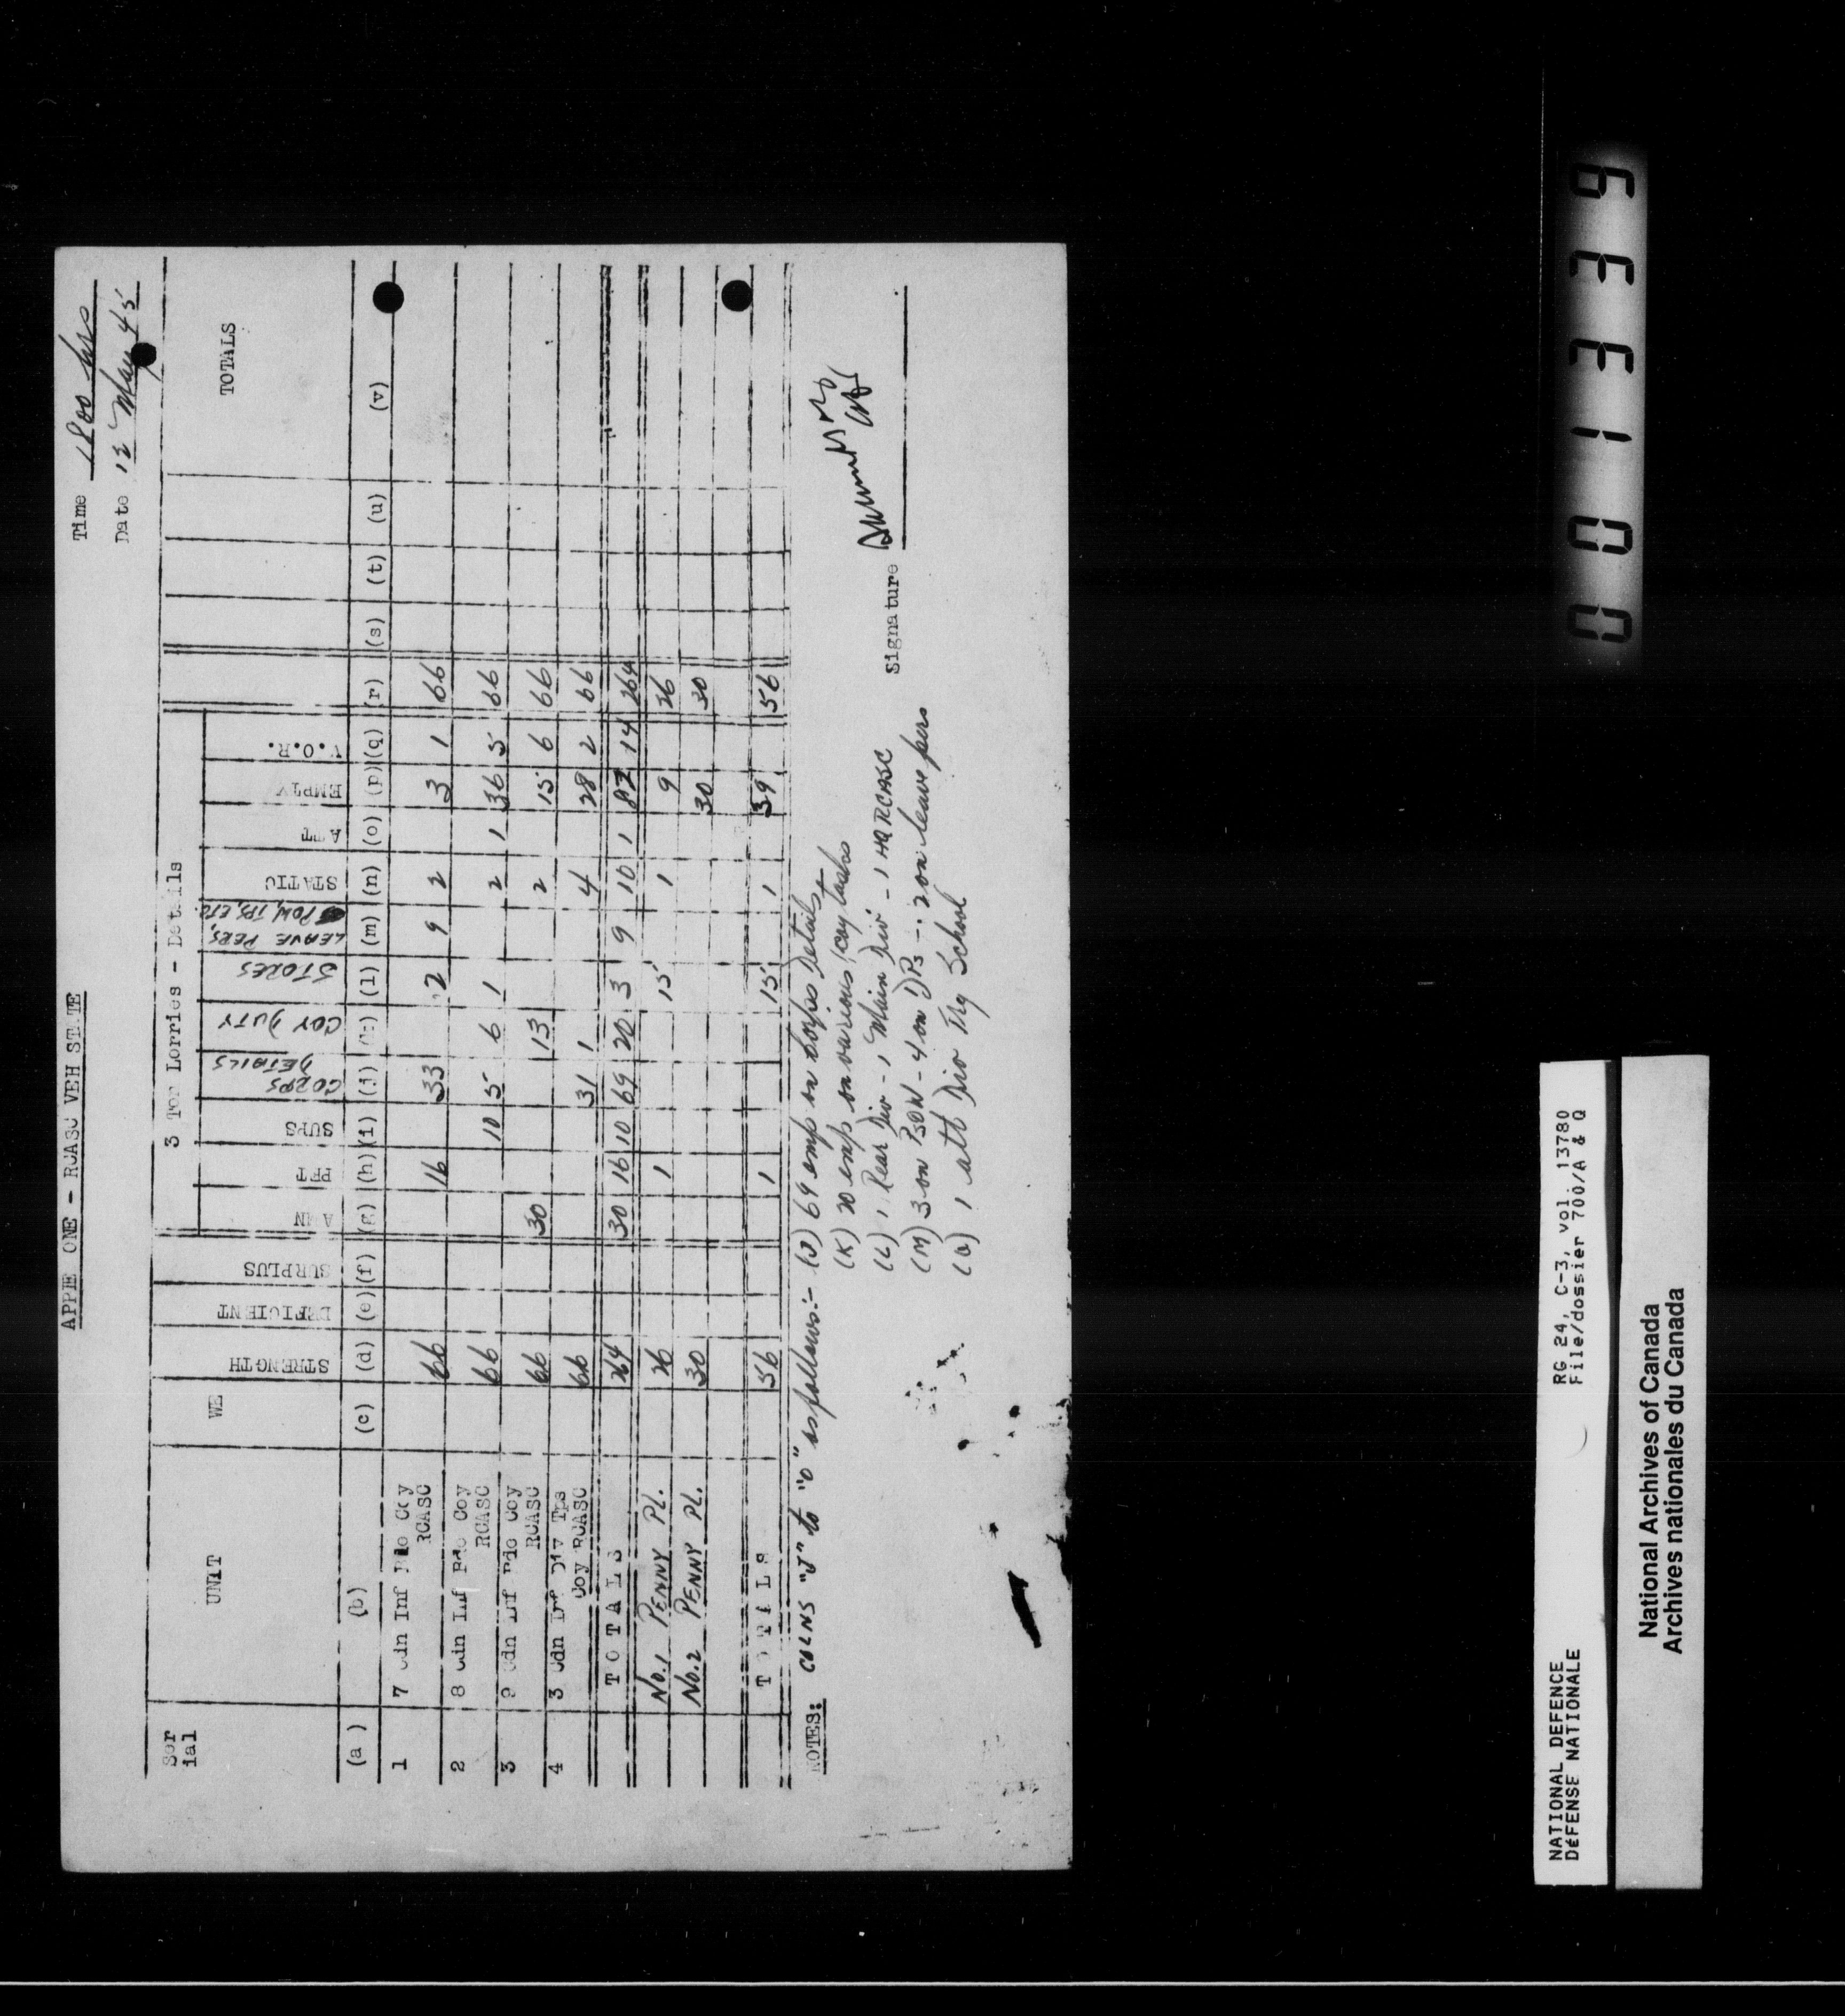 APPIE ONE - RCASC VEH STATE
Time 1800 hrs
Date 12 May 45
Ser ial
UNIT
WE
STRENGTH
DEFICIENT
SURPLUS
3 Ton Lorries - Details
AMN
PET
SUPS
CORPS DETAILS
COY DUTY
STORES
LEAVE PERS, POW, IPS, ETC.
STATIC
ATT
EMPTY
V.O.R.
TOTALS
(a) (b) (c) (d) (e) (f) (g) (h) (i) (j) (k) (l) (m) (n) (o) (p) (q) (r) (s) (t) (u) (v)
1 7 Cdn Inf Bde Coy RCASC 66 16 33 2 9 2 3 1 66
2 8 Cdn Inf Bde Coy RCASC 66 10 5 6 1 2 1 36 5 66
3 9 Cdn Inf Bde Coy RCASC 66 30 13 2 15 6 66
4 3 Cdn Inf Div Tps Coy RCASC 66 31 1 4 28 2 66
TOTALS 264 30 16 10 69 20 3 9 10 1 82 14 264
No.1 PENNY PL. 26 1 15 1 9 26
No.2 PENNY PL. 30 30 30
TOTALS 56 1 15 1 39 56
NOTES: COLNS "J" to "O" as follows:- (J) 69 emp on Corps Details
(K) 20 emp on various Coy tasks
(L) 1 Rear Div - 1 Main Div - 1 HQ RCASC
(M) 3 on PsOW - 4 on DPs - 2 on leave pers
(O) 1 att Div Trg School
Signature
001339
NATIONAL DEFENCE
DéFENSE NATIONALE
RG 24, C-3, vol. 13780
File/dossier 700/A & Q
National Archives of Canada
Archives nationales du Canada